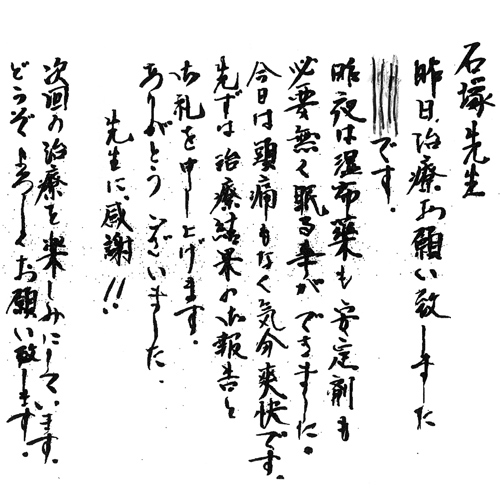 石塚先生
昨日、治療お願い致しました
です。
昨夜は湿布薬も安定剤も
必要無く眠る事ができました。
今日は頭痛もなく気分爽快です。
先ずは治療結果の御報告と
御礼を申し上げます。
ありがとうございました。
先生に感謝!!
次回の治療を楽しみにしています。
どうぞよろしくお願い致します。